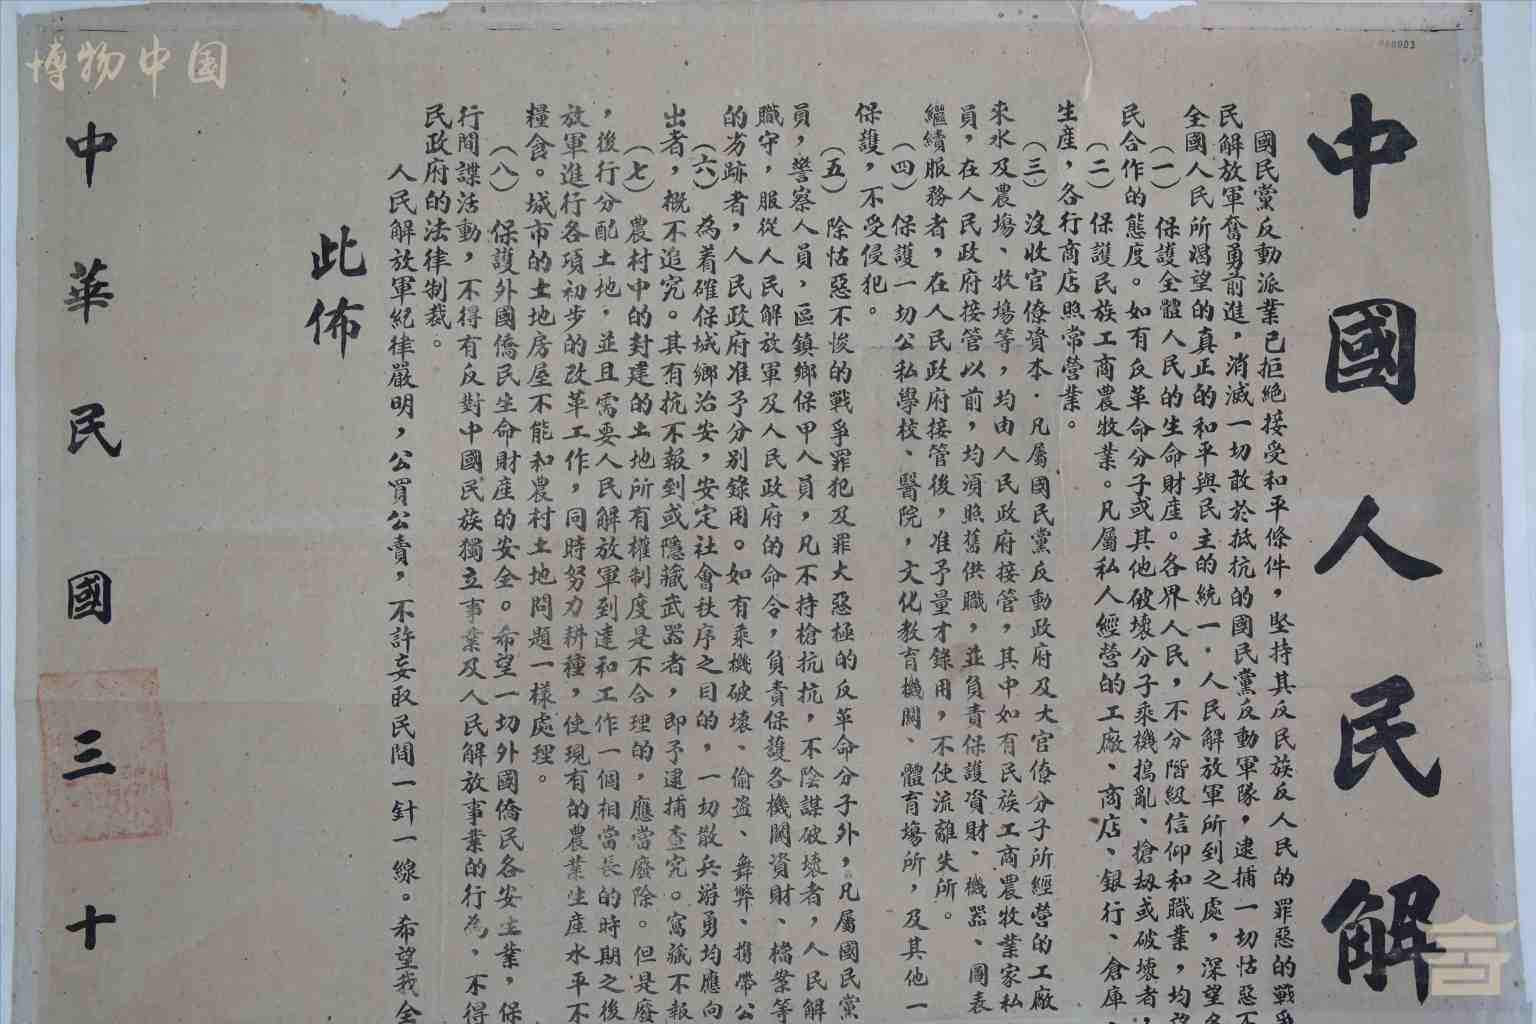 博物中国
000003
中國人民解
國民黨反動派業已拒絕接受和平條件，堅持其反民族反人民的罪惡的戰爭
民解放軍奮勇前進，消滅一切敢於抵抗的國民黨反動軍隊，逮捕一切怙惡不
全國人民所渴望的真正的和平與民主的統一．人民解放軍所到之處，深望各
（一）保護全體人民的生命財產。各界人民，不分階級信仰和職業，均望
民合作的態度。如有反革命分子或其他破壞分子乘機搗亂、搶劫或破壞者，
（二）保護民族工商農牧業。凡屬私人經營的工廠、商店、銀行、倉庫、
生產，各行商店照常營業。
（三）沒收官僚資本．凡屬國民黨反動政府及大官僚分子所經營的工廠
來水及農場、牧場等，均由人民政府接管，其中如有民族工商農牧業家私
員，在人民政府接管以前，均須照舊供職，並負責保護資財、機器、圖表
繼續服務者，在人民政府接管後，准予量才錄用，不使流離失所。
（四）保護一切公私學校、醫院，文化教育機關、體育場所，及其他一
保護，不受侵犯。
（五）除怙惡不悛的戰爭罪犯及罪大惡極的反革命分子外，凡屬國民黨
員，警察人員，區鎮鄉保甲人員，凡不持槍抗抗，不陰謀破壞者，人民解
職守，服從人民解放軍及人民政府的命令，負責保護各機關資財、檔案等
的劣跡者，人民政府准予分別錄用。如有乘機破壞、偷盜、舞弊、携帶公
（六）為着確保城鄉治安，安定社會秩序之目的，一切散兵游勇均應向
出者，概不追究。其有抗不報到或隱藏武器者，即予逮捕查究。窩藏不報
（七）農村中的封建的土地所有權制度是不合理的，應當廢除。但是廢
，後行分配土地，並且需要人民解放軍到達和工作一個相當長的時期之後
放軍進行各項初步的改革工作，同時努力耕種，使現有的農業生產水平不
糧食。城市的土地房屋不能和農村土地問題一樣處理。
（八）保護外國僑民生命財產的安全。希望一切外國僑民各安生業，保
行間諜活動，不得有反對中國民族獨立事業及人民解放事業的行為，不得
民政府的法律制裁。
人民解放軍紀律嚴明，公買公賣，不許妄取民間一針一線。希望我全
此佈
中華民國三十